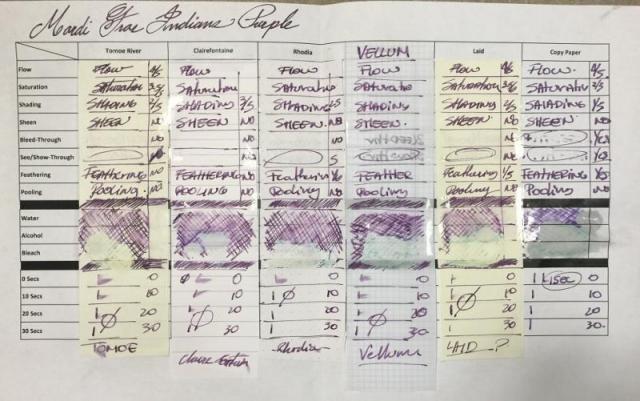 Mardi Gras Indians Purple
Tomoe River Clairefontaine Rhodia VELLUM Laid Copy Paper
Flow FLOW 4/5 FLOW FLOW FLOW FLOW 4/5 FLOW. 4/5
Saturation Saturation 3/5 Saturation Saturatio Saturatio Saturation 3/5 Saturatn 3/5
Shading SHADING 2/5 SHADING 3/5 SHADING SHADING SHADING 2/5 SHADING 1/5
Sheen SHEEN NO SHEEN NO SHEEN. NO SHEEN. SHEEN NO SHEEN NO
Bleed-Through NO NO NO NO Yes
See/Show-Through NO NO Yes
Feathering FEATHERING NO FEATHERING NO Feathering FEATHER Feathering 1/5 FEATHERING
Pooling Pooling NO POOLING NO Pooling NO Pooling Pooling NO Pooling NO
Water
Alcohol
Bleach
0 Secs 0 0 0 0 0 1 1sec 0
10 Secs 10 10 1 10 10 10 1 10
20 Secs 20 20 1 20 20 20 1 20
30 Secs 1 30 1 30 1 30 1 30. 1 30 1 30.
TOMOE Claire Fontain Rhodia Vellum LAID ?